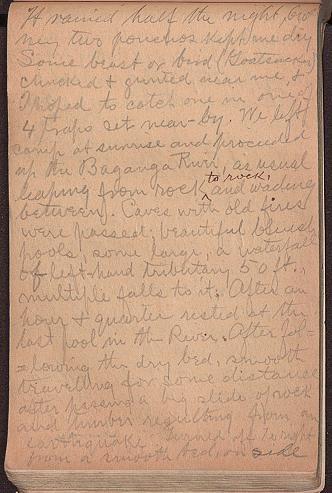 It rained half the night, but
my two ponchos kept me dry
Some beast or bird (Goatsucker)
chucked & grunted near me, &
I hoped to catch one in one of
4 traps set near-by. We left
camp at sunrise and proceeded
up the Baganga River, as usual
to rock,
leaping from rock ^ and wading
between. Caves with old fires
were passed; beautiful bluish
pools, some large, a waterfall
of left-hand tributary 50 ft.,
multiple falls to it. After an
hour & quarter rested at the
last pool in the River. After fol-
=lowing the dry bed, smooth
travelling for some distance
after passing a big slide of rock
and timber resulting from an
earthquake. Turned off to right
from a smooth bed, on side